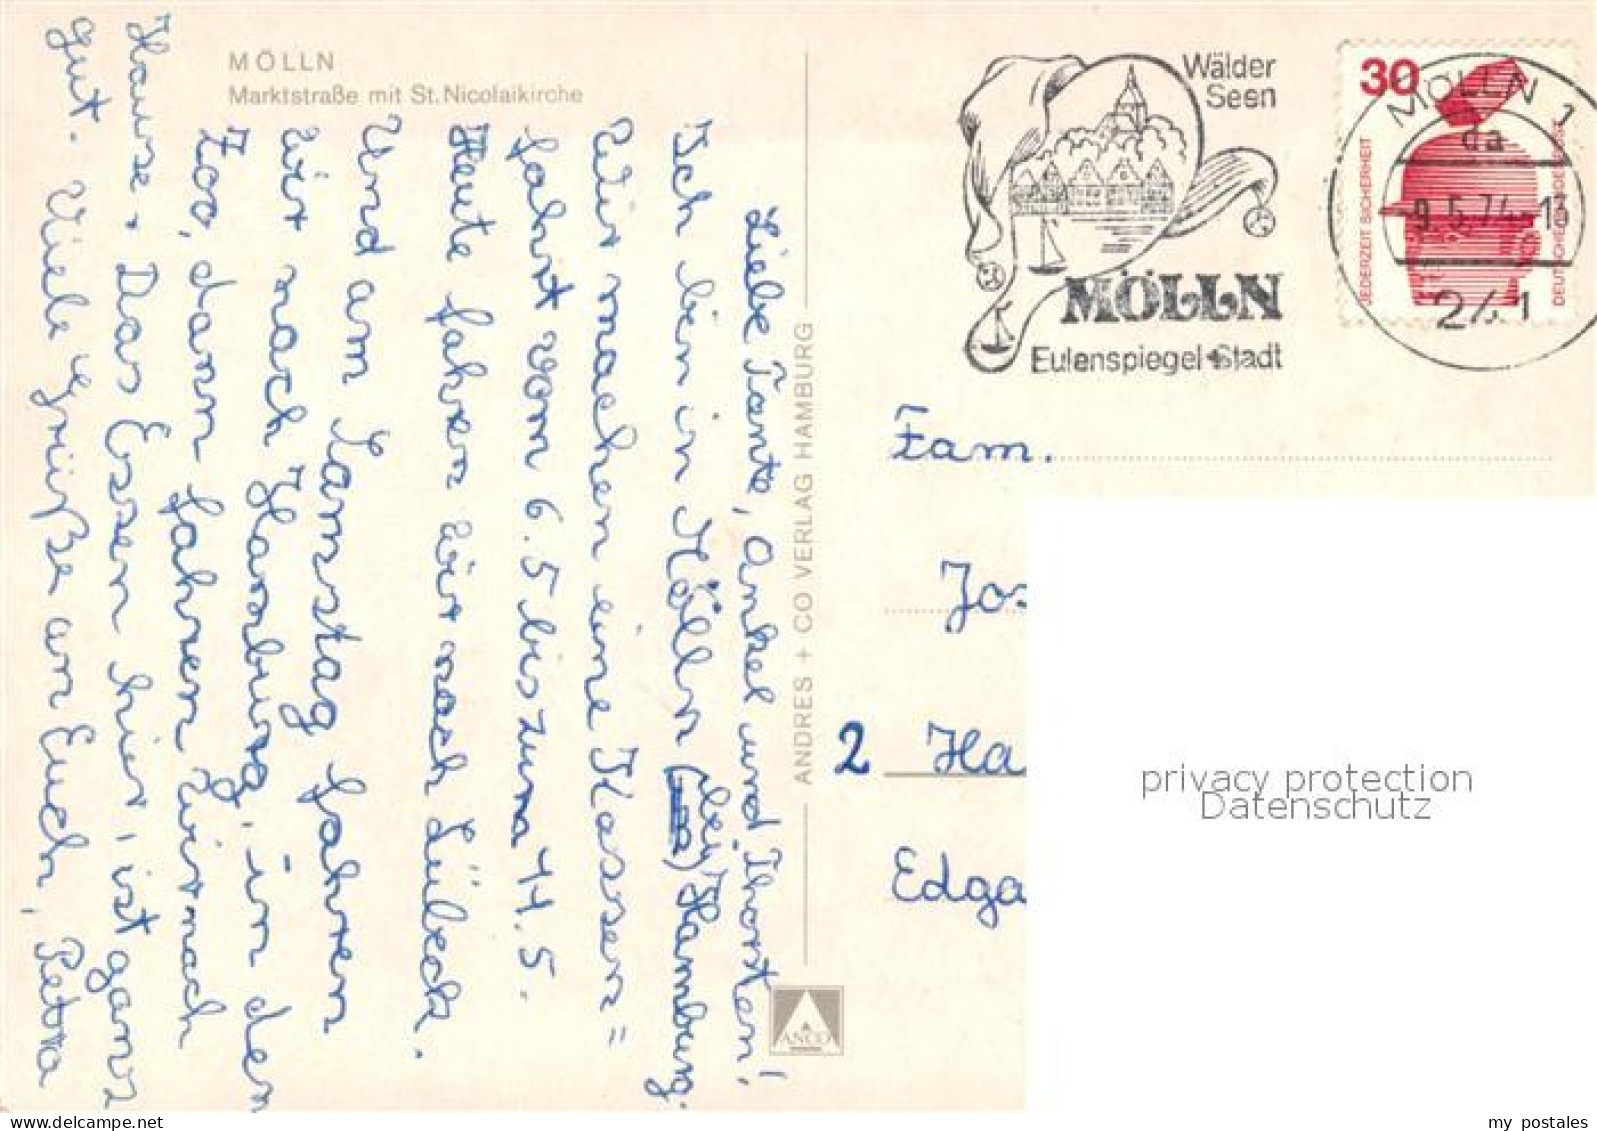 MÖLLN
Marktstraße mit St. Nicolaikirche
Liebe Tante, Onkel und Thorsten!
Ich bin in Mölln (bei) Hamburg.
Wir machen eine Klassen=
fahrt vom 6.5 bis zum 11.5.
Heute fahren wir nach Lübeck.
Und am Samstag fahren
wir nach Harburg, in den
Zoo, dann fahren wir nach
Hause. Das Essen hier, ist ganz
gut. Viele Grüße an Euch, Petra
ANDRES + CO VERLAG HAMBURG
ANCO
Wälder
Seen
MÖLLN
Eulenspiegel-Stadt
30
JEDERZEIT SICHERHEIT
DEUTSCHE BUNDESPOST
MÖLLN 1
da
-9.5.74-13
241
Fam.
Jo
2 Ha
Edga
privacy protection
Datenschutz
my postales